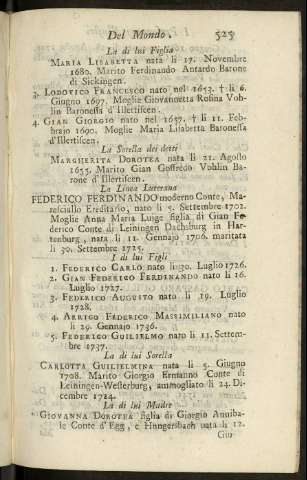 Del Mondo. 525
La di lui Figlia
MARIA LISABETTA nata li 17. Novembre
1680. Marito Ferdinando Antardo Barone
di Sickingen.
3. LODOVICO FRANCESCO nato nel 1653. † li 6.
Giugno 1697. Moglie Giovannetta Rosina Voh-
lin Baronessa d'Illertissen.
4. GIAN GIORGIO nato nel 1657. † li 11. Feb-
brajo 1690. Moglie Maria Lisabetta Baronessa
d'Illertissen.
La Sorella dei detti
MARGHERITA DOROTEA nata li 21. Agosto
1655. Marito Gian Goffredo Vohlin Ba-
rone d'Illertissen.
La Linea Luterana
FEDERICO FERDINANDO moderno Conte, Ma-
resciallo Ereditario, nato li 5. Settembre 1702.
Moglie Anna Maria Luige figlia di Gian Fe-
derico Conte di Leiningen Dachsburg in Har-
tenburg, nata li 11. Gennajo 1706. maritata
li 30. Settembre 1725.
I di lui Figli
1. FEDERICO CARLO nato li 30. Luglio 1726.
2. GIAN FEDERICO FERDINANDO nato li 16.
Luglio 1727.
3. FEDERICO AUGUSTO nato li 19. Luglio
1728.
4. ARRIGO FEDERICO MASSIMILIANO nato
li 29. Gennajo 1736.
5. FEDERICO GUILIELMO nato li 11. Settem-
bre 1737.
La di lui Sorella
CARLOTTA GUILIELMINA nata li 5. Giugno
1708. Marito Giorgio Ermanno Conte di
Leiningen-Westerburg, ammogliato li 24. Di-
cembre 1724.
La di lui Madre
GIOVANNA DOROTEA figlia di Giorgio Anniba-
le Conte d'Egg, e Hungersbach nata li 12.
Giu-